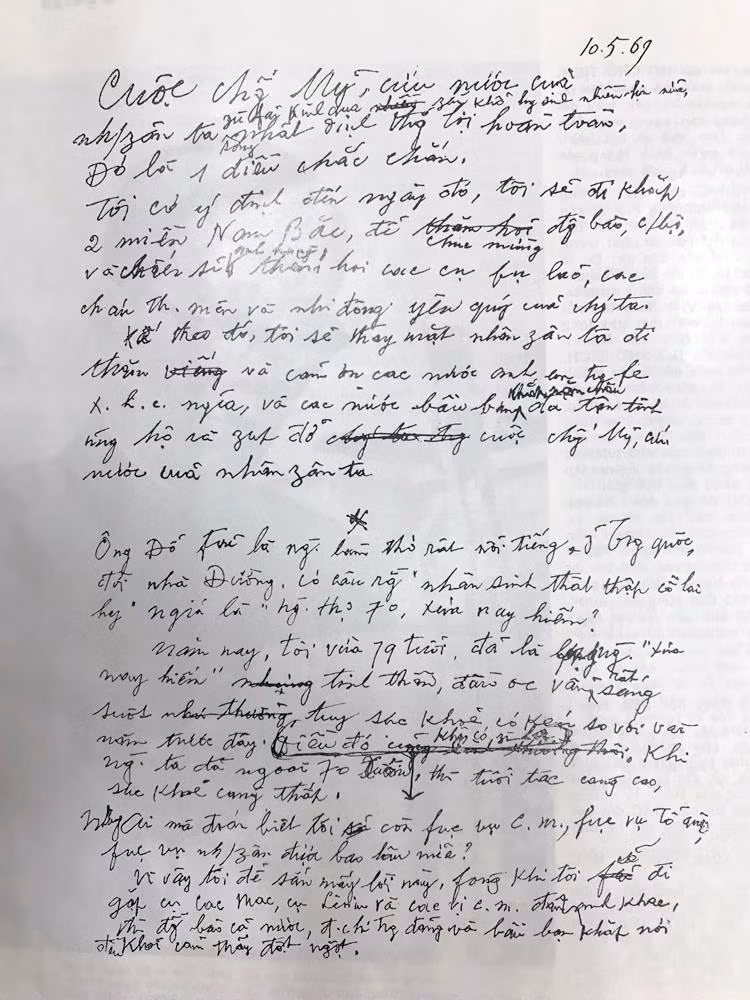 10.5.69
Cuộc chố Mỹ, cứu nước của
zù fải kinh qua zan khổ hy sinh nhiều hơn nữa,
nh/zân ta nhất định thắng lợi hoàn toàn.
Đó là 1 điều chắc chắn.
Tôi có ý định đến ngày đó, tôi sẽ đi khắp
2 miền Nam Bắc, để chúc mừng đồng bào, c/bộ,
và chiến sĩ anh hùng, thăm hỏi các cụ fụ lão, các
cháu th. niên và nhi đồng yêu quý của chúng ta.
Kế theo đó, tôi sẽ thay mặt nhân zân ta đi
thăm và cám ơn các nước anh em trg fe
x. h. c. ngĩa, và các nước bầu bạn khắp năm châu đã tận tình
ủng hộ và zúp đỡ cuộc chố Mỹ, cứu
nước của nhân zân ta
Ông Đỗ Fủ là ng. làm thơ rất nổi tiếng, ở Trg quốc,
đời nhà Đường. Có câu rằg "nhân sinh thất thập cổ lai
hy" ngĩa là "ng. thọ 70, xưa nay hiếm".
Năm nay, tôi vừa 79 tuổi, đã là lớp ng. "xưa
nay hiếm" tinh thần, đầu óc vẫn rất sáng
suốt, tuy sức khoẻ có kém so với vài
năm trước đây. Khi
ng. ta đã ngoài 70 xuân, thì tuổi tác càng cao,
sức khoẻ càng thấp.
Nhưg ai mà đoán biết tôi còn fục vụ c. m., fục vụ Tổ quốc,
fục vụ nh/zân được bao lâu nữa?
Vì vậy tôi để sẵn mấy lời này, fòng khi tôi sẽ đi
gặp cụ Các Mác, cụ Lênin và các vị c. m. đàn anh khác,
thì đồg bào cả nước, đ. chí trg đảng và bầu bạn khắp nơi
đều khỏi cảm thấy đột ngột.